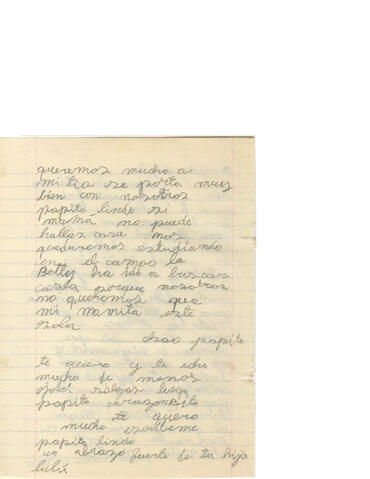 queremos mucho a
mi tia se porta muy
bien con nosotros
papito lindo si
mamá no puede
hallar casa nos
quedaremos estudiando
en el campo la
Betty ha ido a buscar
casa porque nosotros
no queremos que
mi mamita este
sola
chao papito
te quiero y te echo
mucho de menos
ojala salgas luego
papito corazoncito
te quero
mucho escribeme
papito lindo
un abrazo fuerte de tu hija
lulú